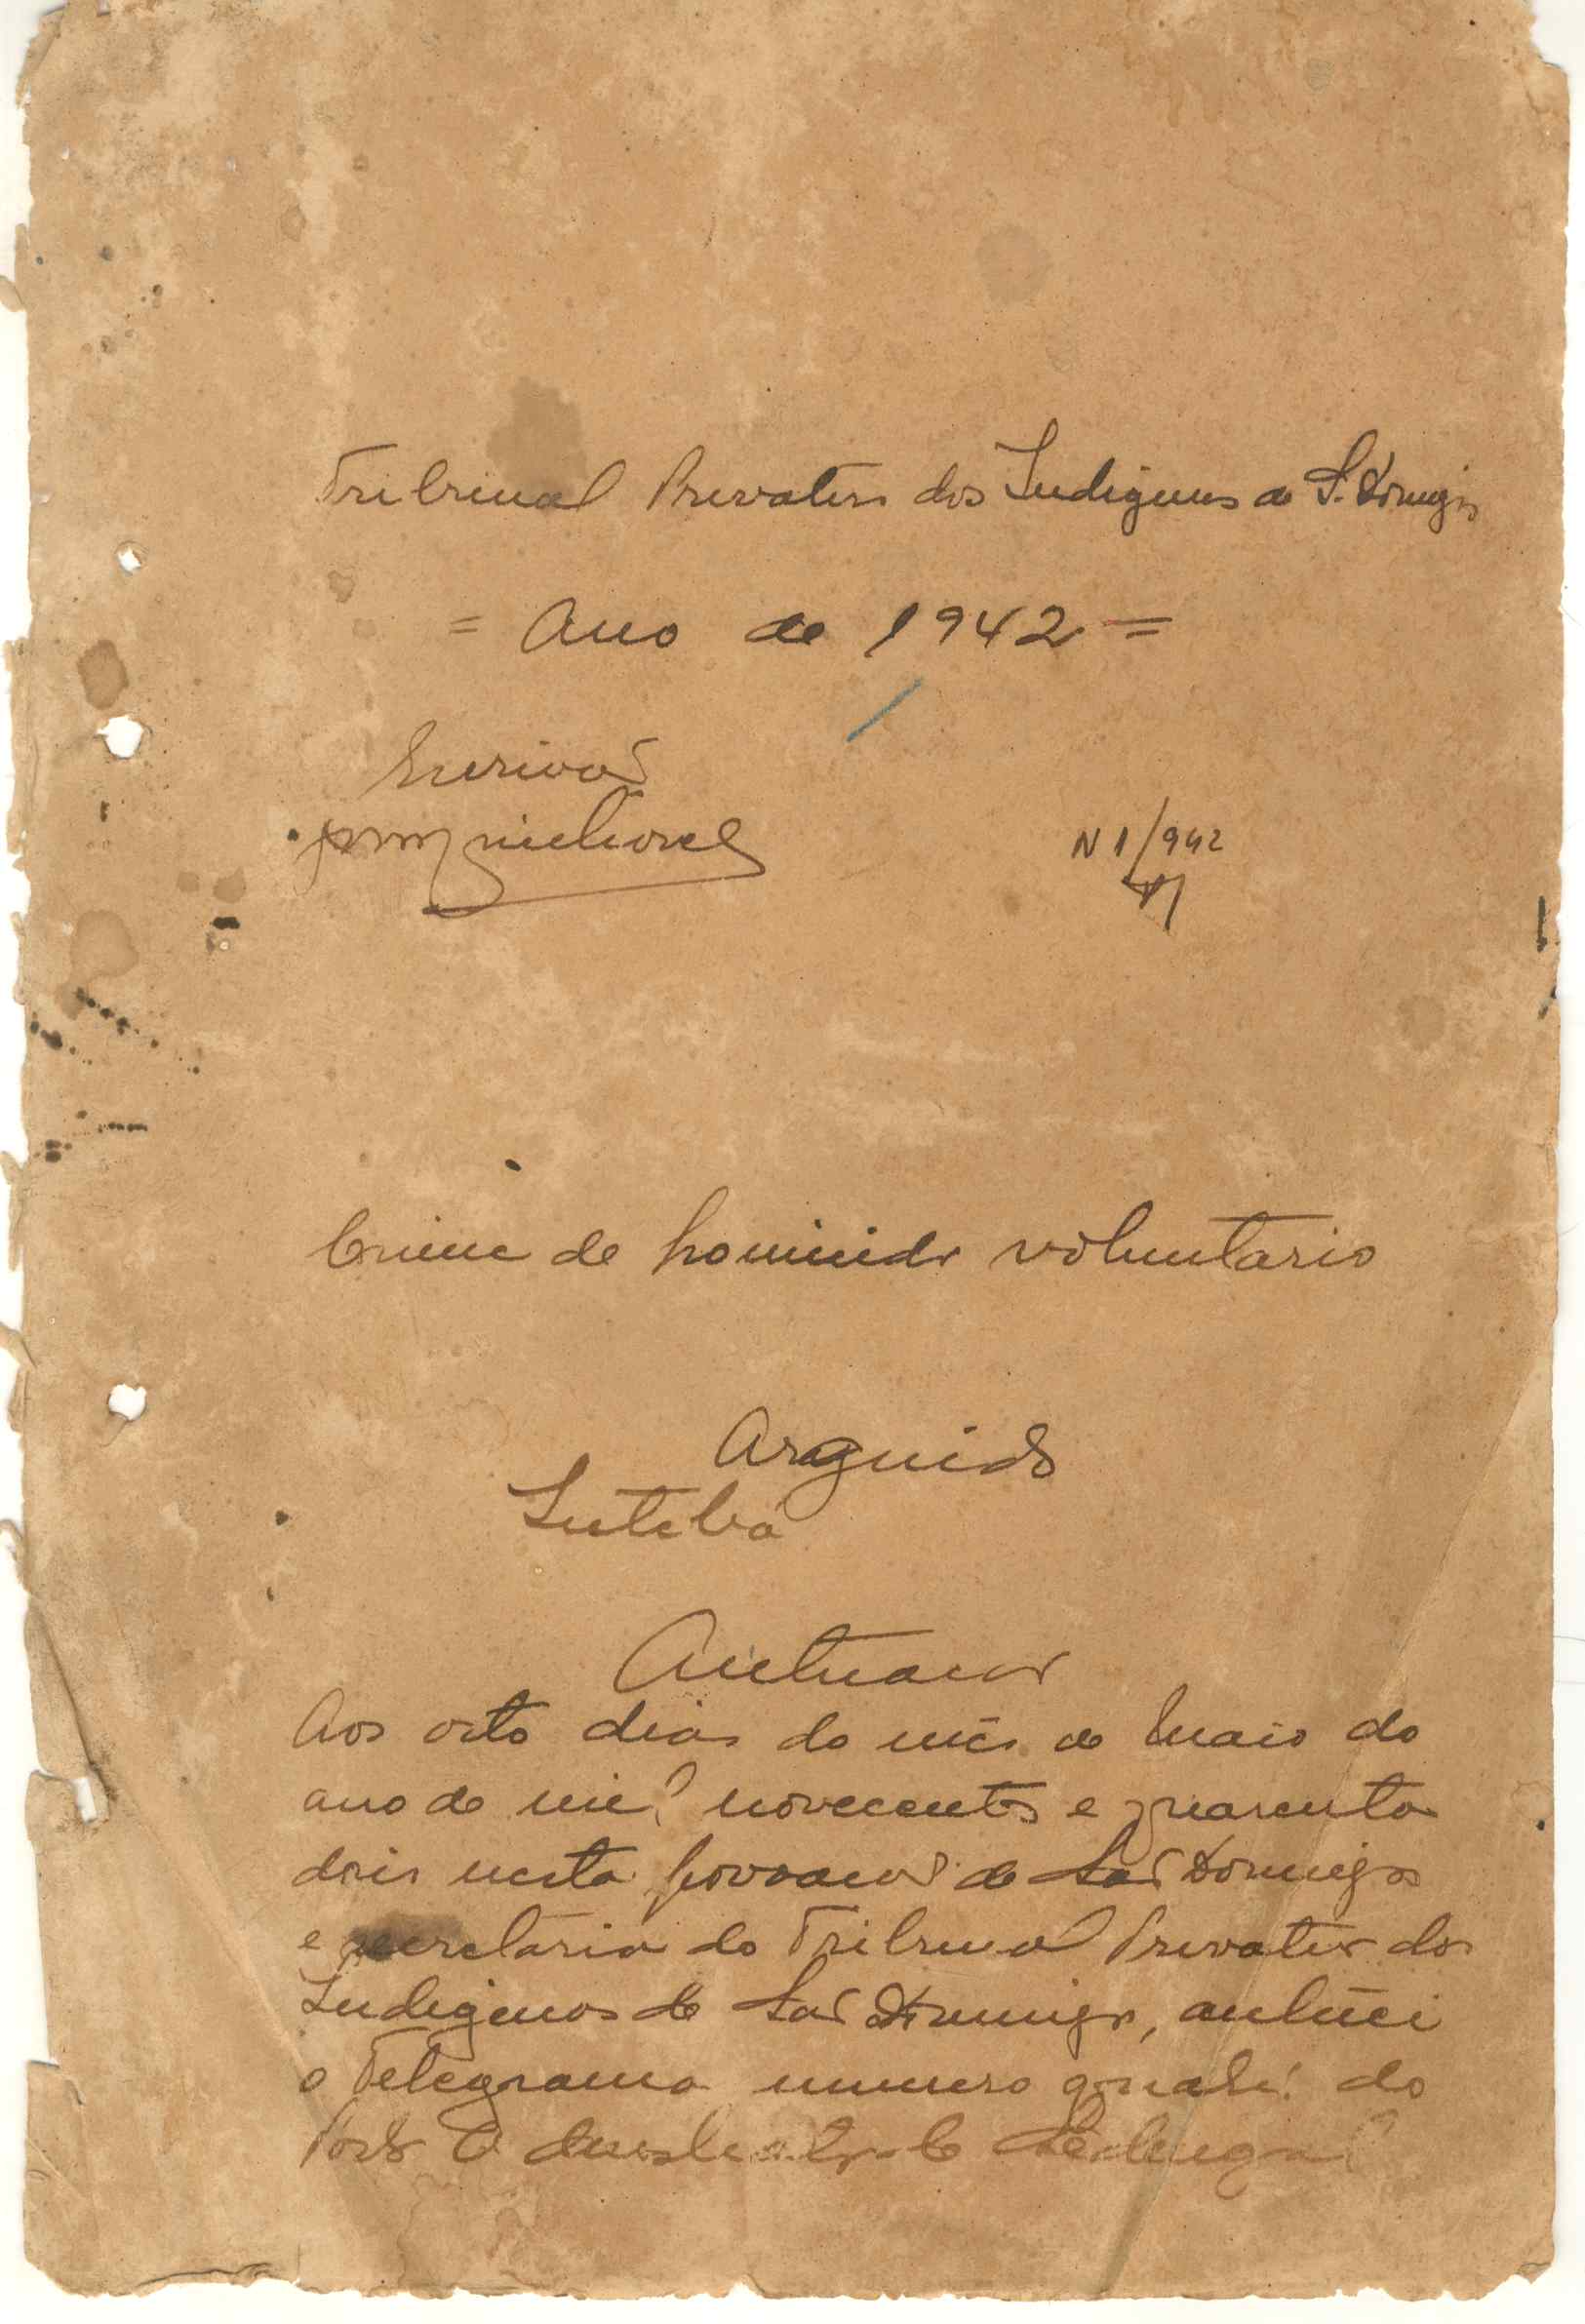 Tribunal Privativo dos Indigenas de S. Domingos
= Ano de 1942 =
Escrivão
N 1/942
Crime de homicidio voluntario
Arguido
Intibá
Autuacão
Aos oito dias do mês de Maio do
ano de mil novecentos e quarenta
dois nesta povoacão de São Domingos
e secretaria do Tribunal Privativo dos
Indigenas de São Domingos, autúei
o Telegrama numero do
Posto